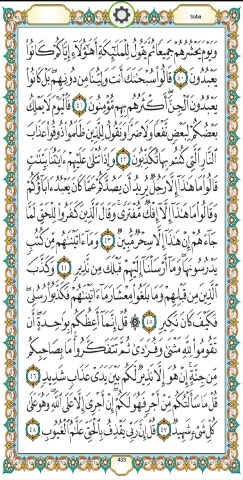 Saba
وَيَوْمَ يَحْشُرُهُمْ جَمِيعًا ثُمَّ يَقُولُ لِلْمَلَٰٓئِكَةِ أَهَٰٓؤُلَآءِ إِيَّاكُمْ كَانُوا۟
يَعْبُدُونَ ٤٠ قَالُوا۟ سُبْحَٰنَكَ أَنتَ وَلِيُّنَا مِن دُونِهِم بَلْ كَانُوا۟
يَعْبُدُونَ ٱلْجِنَّ أَكْثَرُهُم بِهِم مُّؤْمِنُونَ ٤١ فَٱلْيَوْمَ لَا يَمْلِكُ
بَعْضُكُمْ لِبَعْضٍ نَّفْعًا وَلَا ضَرًّا وَنَقُولُ لِلَّذِينَ ظَلَمُوا۟ ذُوقُوا۟ عَذَابَ
ٱلنَّارِ ٱلَّتِى كُنتُم بِهَا تُكَذِّبُونَ ٤٢ وَإِذَا تُتْلَىٰ عَلَيْهِمْ ءَايَٰتُنَا بَيِّنَٰتٍ
قَالُوا۟ مَا هَٰذَآ إِلَّا رَجُلٌ يُرِيدُ أَن يَصُدَّكُمْ عَمَّا كَانَ يَعْبُدُ ءَابَآؤُكُمْ
وَقَالُوا۟ مَا هَٰذَآ إِلَّآ إِفْكٌ مُّفْتَرًى وَقَالَ ٱلَّذِينَ كَفَرُوا۟ لِلْحَقِّ لَمَّا
جَآءَهُمْ إِنْ هَٰذَآ إِلَّا سِحْرٌ مُّبِينٌ ٤٣ وَمَآ ءَاتَيْنَٰهُم مِّن كُتُبٍ
يَدْرُسُونَهَا وَمَآ أَرْسَلْنَآ إِلَيْهِمْ قَبْلَكَ مِن نَّذِيرٍ ٤٤ وَكَذَّبَ
ٱلَّذِينَ مِن قَبْلِهِمْ وَمَا بَلَغُوا۟ مِعْشَارَ مَآ ءَاتَيْنَٰهُمْ فَكَذَّبُوا۟ رُسُلِى
فَكَيْفَ كَانَ نَكِيرِ ٤٥ قُلْ إِنَّمَآ أَعِظُكُم بِوَٰحِدَةٍ أَن
تَقُومُوا۟ لِلَّهِ مَثْنَىٰ وَفُرَٰدَىٰ ثُمَّ تَتَفَكَّرُوا۟ مَا بِصَاحِبِكُم
مِّن جِنَّةٍ إِنْ هُوَ إِلَّا نَذِيرٌ لَّكُم بَيْنَ يَدَىْ عَذَابٍ شَدِيدٍ ٤٦
قُلْ مَا سَأَلْتُكُم مِّنْ أَجْرٍ فَهُوَ لَكُمْ إِنْ أَجْرِىَ إِلَّا عَلَى ٱللَّهِ وَهُوَ عَلَىٰ
كُلِّ شَىْءٍ شَهِيدٌ ٤٧ قُلْ إِنَّ رَبِّى يَقْذِفُ بِٱلْحَقِّ عَلَّٰمُ ٱلْغُيُوبِ ٤٨
433